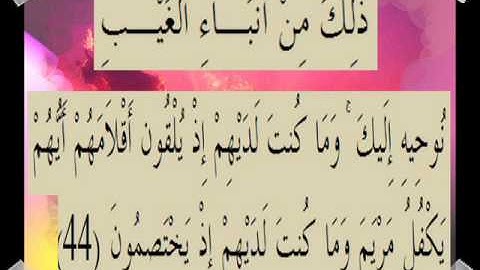 ذَٰلِكَ مِنْ أَنْبَاءِ الْغَيْبِ
نُوحِيهِ إِلَيْكَ ۚ وَمَا كُنتَ لَدَيْهِمْ إِذْ يُلْقُون أَقْلَامَهُمْ أَيُّهُمْ
يَكْفُلُ مَرْيَمَ وَمَا كُنتَ لَدَيْهِمْ إِذْ يَخْتَصِمُونَ (44)